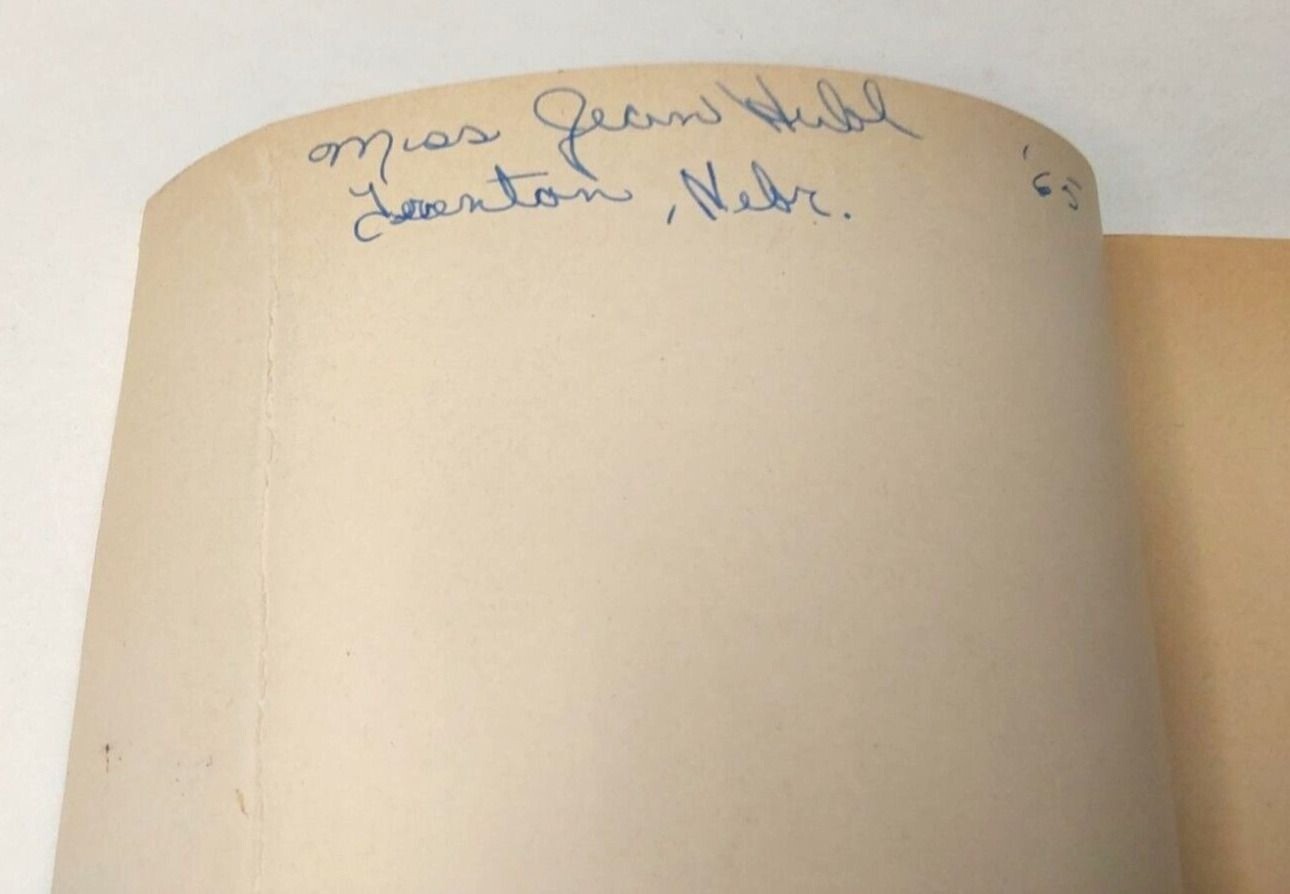 Miss Jean Hubl
Trenton, Nebr. '65